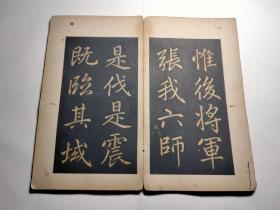 惟後將軍
張我六師
是伐是震
既臨其域